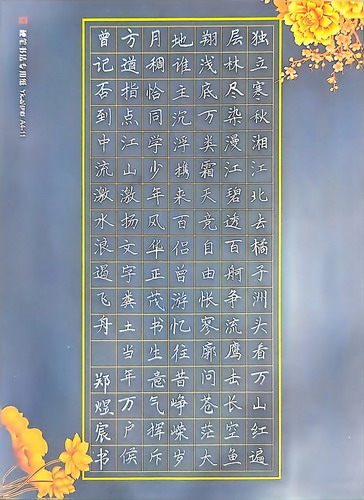 独立寒秋湘江北去橘子洲头看万山红遍
层林尽染漫江碧透百舸争流鹰击长空鱼
翔浅底万类霜天竞自由怅寥廓问苍茫大
地谁主沉浮携来百侣曾游忆往昔峥嵘岁
月稠恰同学少年风华正茂书生意气挥斥
方遒指点江山激扬文字粪土当年万户侯
曾记否到中流激水浪遏飞舟 郑煜宸书